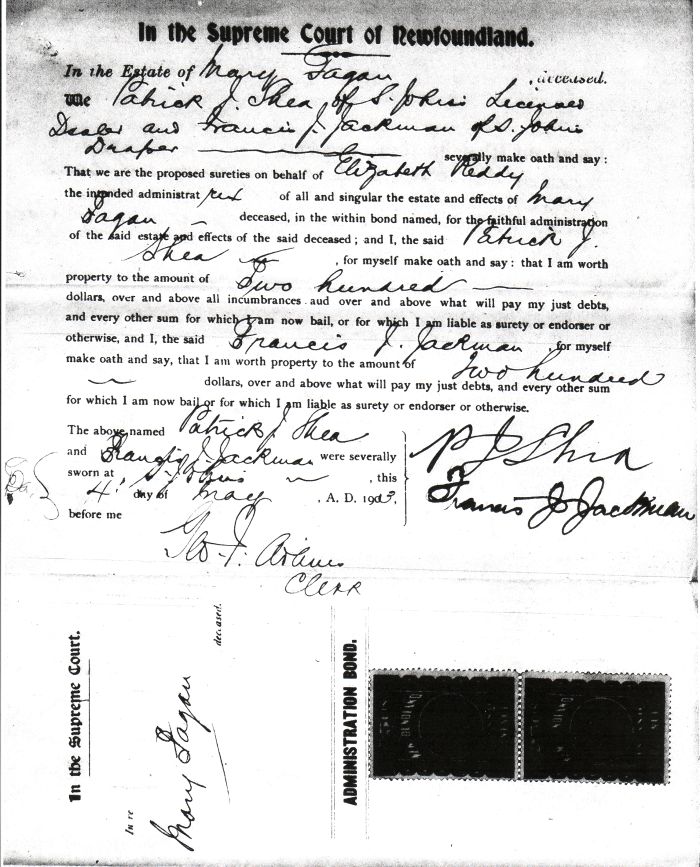 In the Supreme Court of Newfoundland.
In the Estate of Mary Fagan , deceased.
We Patrick J. Shea, of St. John's Licensed
Dealer and Francis J. Jackman of St. John's
Draper severally make oath and say :
That we are the proposed sureties on behalf of Elizabeth Reddy
the intended administrat rix of all and singular the estate and effects of Mary
Fagan deceased, in the within bond named, for the faithful administration
of the said estate and effects of the said deceased ; and I, the said Patrick J.
Shea , for myself make oath and say : that I am worth
property to the amount of Two hundred
dollars, over and above all incumbrances aud over and above what will pay my just debts,
and every other sum for which I am now bail, or for which I am liable as surety or endorser or
otherwise, and I, the said Francis J. Jackman , for myself
make oath and say, that I am worth property to the amount of Two hundred
dollars, over and above what will pay my just debts, and every other sum
for which I am now bail or for which I am liable as surety or endorser or otherwise.
The above named Patrick J Shea
and Francis J. Jackman were severally
sworn at St. John's , this
4. day of May , A. D. 1903,
before me
P J Shea
Francis J Jackman
Geo. J. Adams
Clerk
In the Supreme Court.
In re
Mary Fagan
deceased.
ADMINISTRATION BOND.
NEWFOUNDLAND